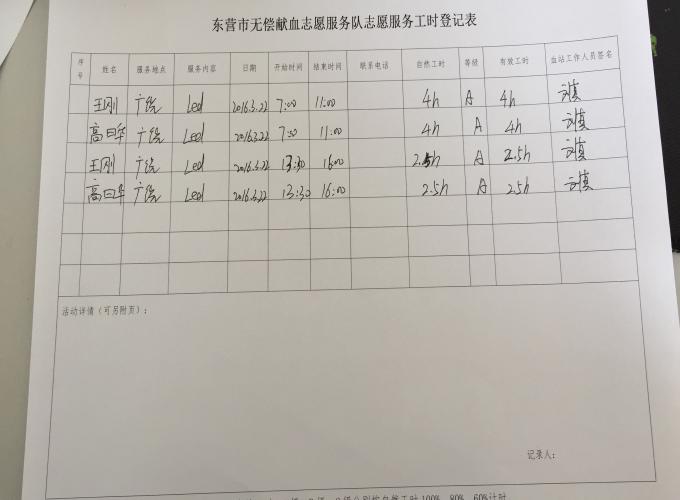 东营市无偿献血志愿服务队志愿服务工时登记表
序号 姓名 服务地点 服务内容 日期 开始时间 结束时间 联系电话 自然工时 等级 有效工时 血站工作人员签名
王刚 广饶 Led 2016.3.22 7:00 11:00 4h A 4h
高曰华 广饶 Led 2016.3.22 7:30 11:00 4h A 4h
王刚 广饶 Led 2016.3.22 13:30 16:00 2.5h A 2.5h
高曰华 广饶 Led 2016.3.22 13:30 16:00 2.5h A 2.5h
活动详情（可另附页）：
记录人：
级分别按自然工时100%、80%、60%计时